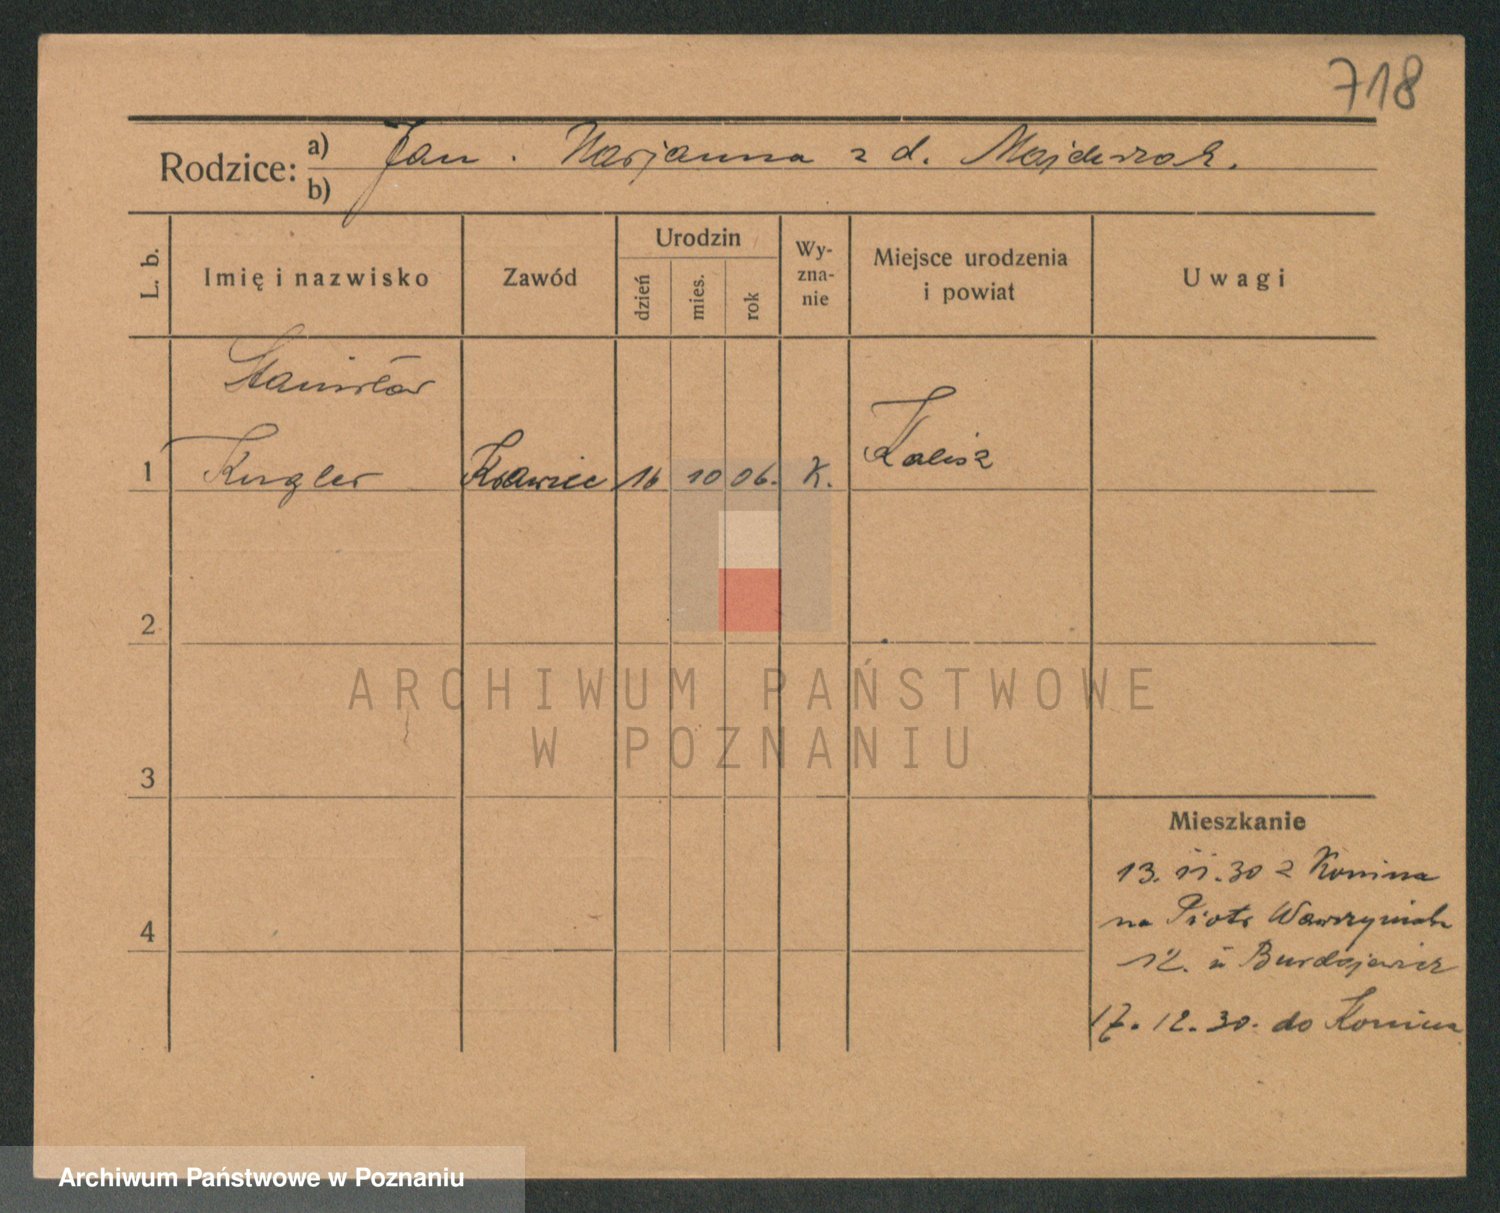 718
Rodzice: a) Jan. Marjanna z d. Majchrzak.
b)
L. b. Imię i nazwisko Zawód Urodzin dzień mies. rok Wy-zna-nie Miejsce urodzenia i powiat Uwagi
Stanisław
1 Kugler Krawiec 16 10 06. K. Kalisz
2
ARCHIWUM PAŃSTWOWE
W POZNANIU
3
Mieszkanie
13. 11. 30 z Konina
4 na Piotr Wawrzyniak
12. u Burdajewicz
17. 12. 30. do Konina
Archiwum Państwowe w Poznaniu